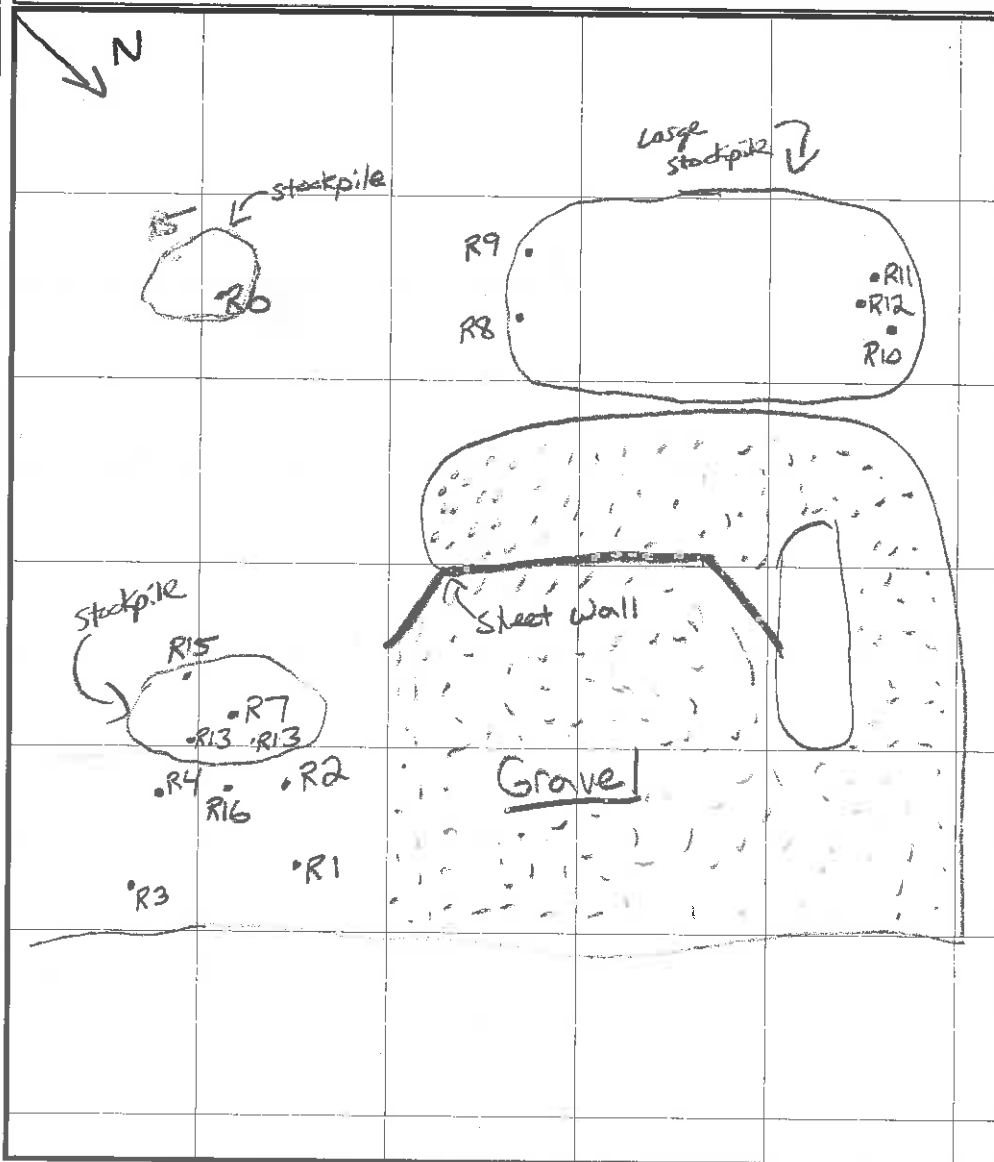 N
Large
stockpile
stockpile
R0
R9
R11
R12
R8
R10
Sheet Wall
stockpile
R15
R7
R13
R13
R4
R2
R16
Gravel
R1
R3